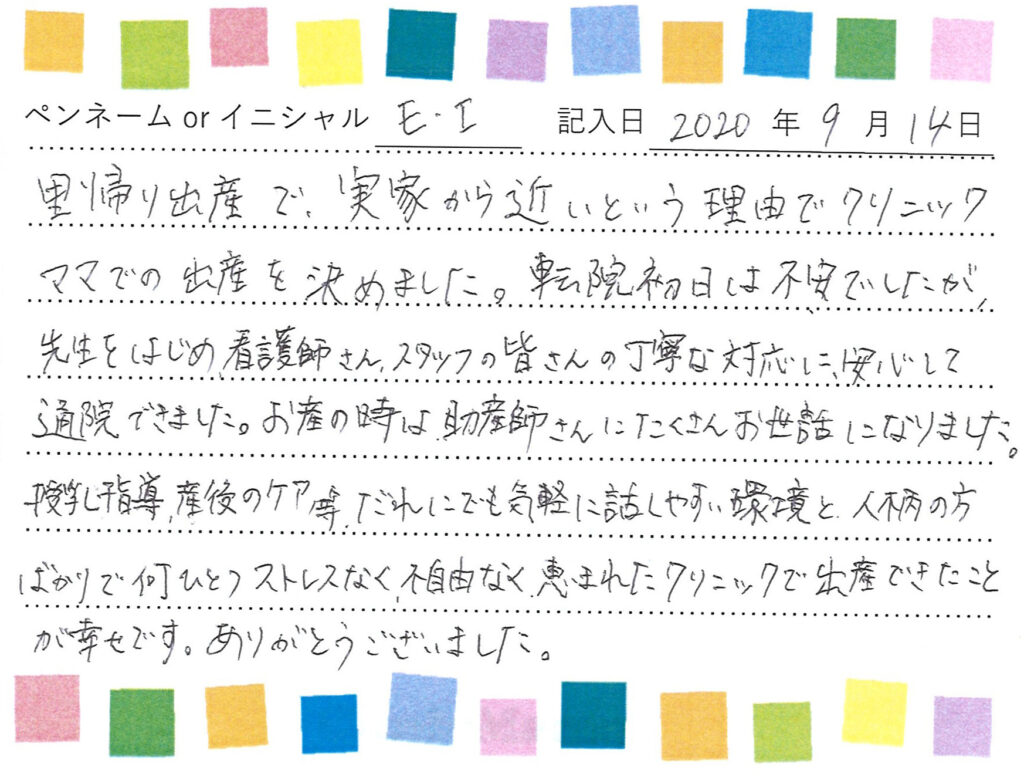 ペンネーム or イニシャル E・I 記入日 2020 年 9 月 14 日
里帰り出産で、実家から近いという理由でクリニック
ママでの出産を決めました。転院初日は不安でしたが、
先生をはじめ、看護師さん、スタッフの皆さんの丁寧な対応に、安心して
通院できました。お産の時は、助産師さんにたくさんお世話になりました。
授乳指導、産後のケア等、だれにでも気軽に話しやすい環境と、人柄の方
ばかりで何ひとつストレスなく、不自由なく、恵まれたクリニックで出産できたこと
が幸せです。ありがとうございました。